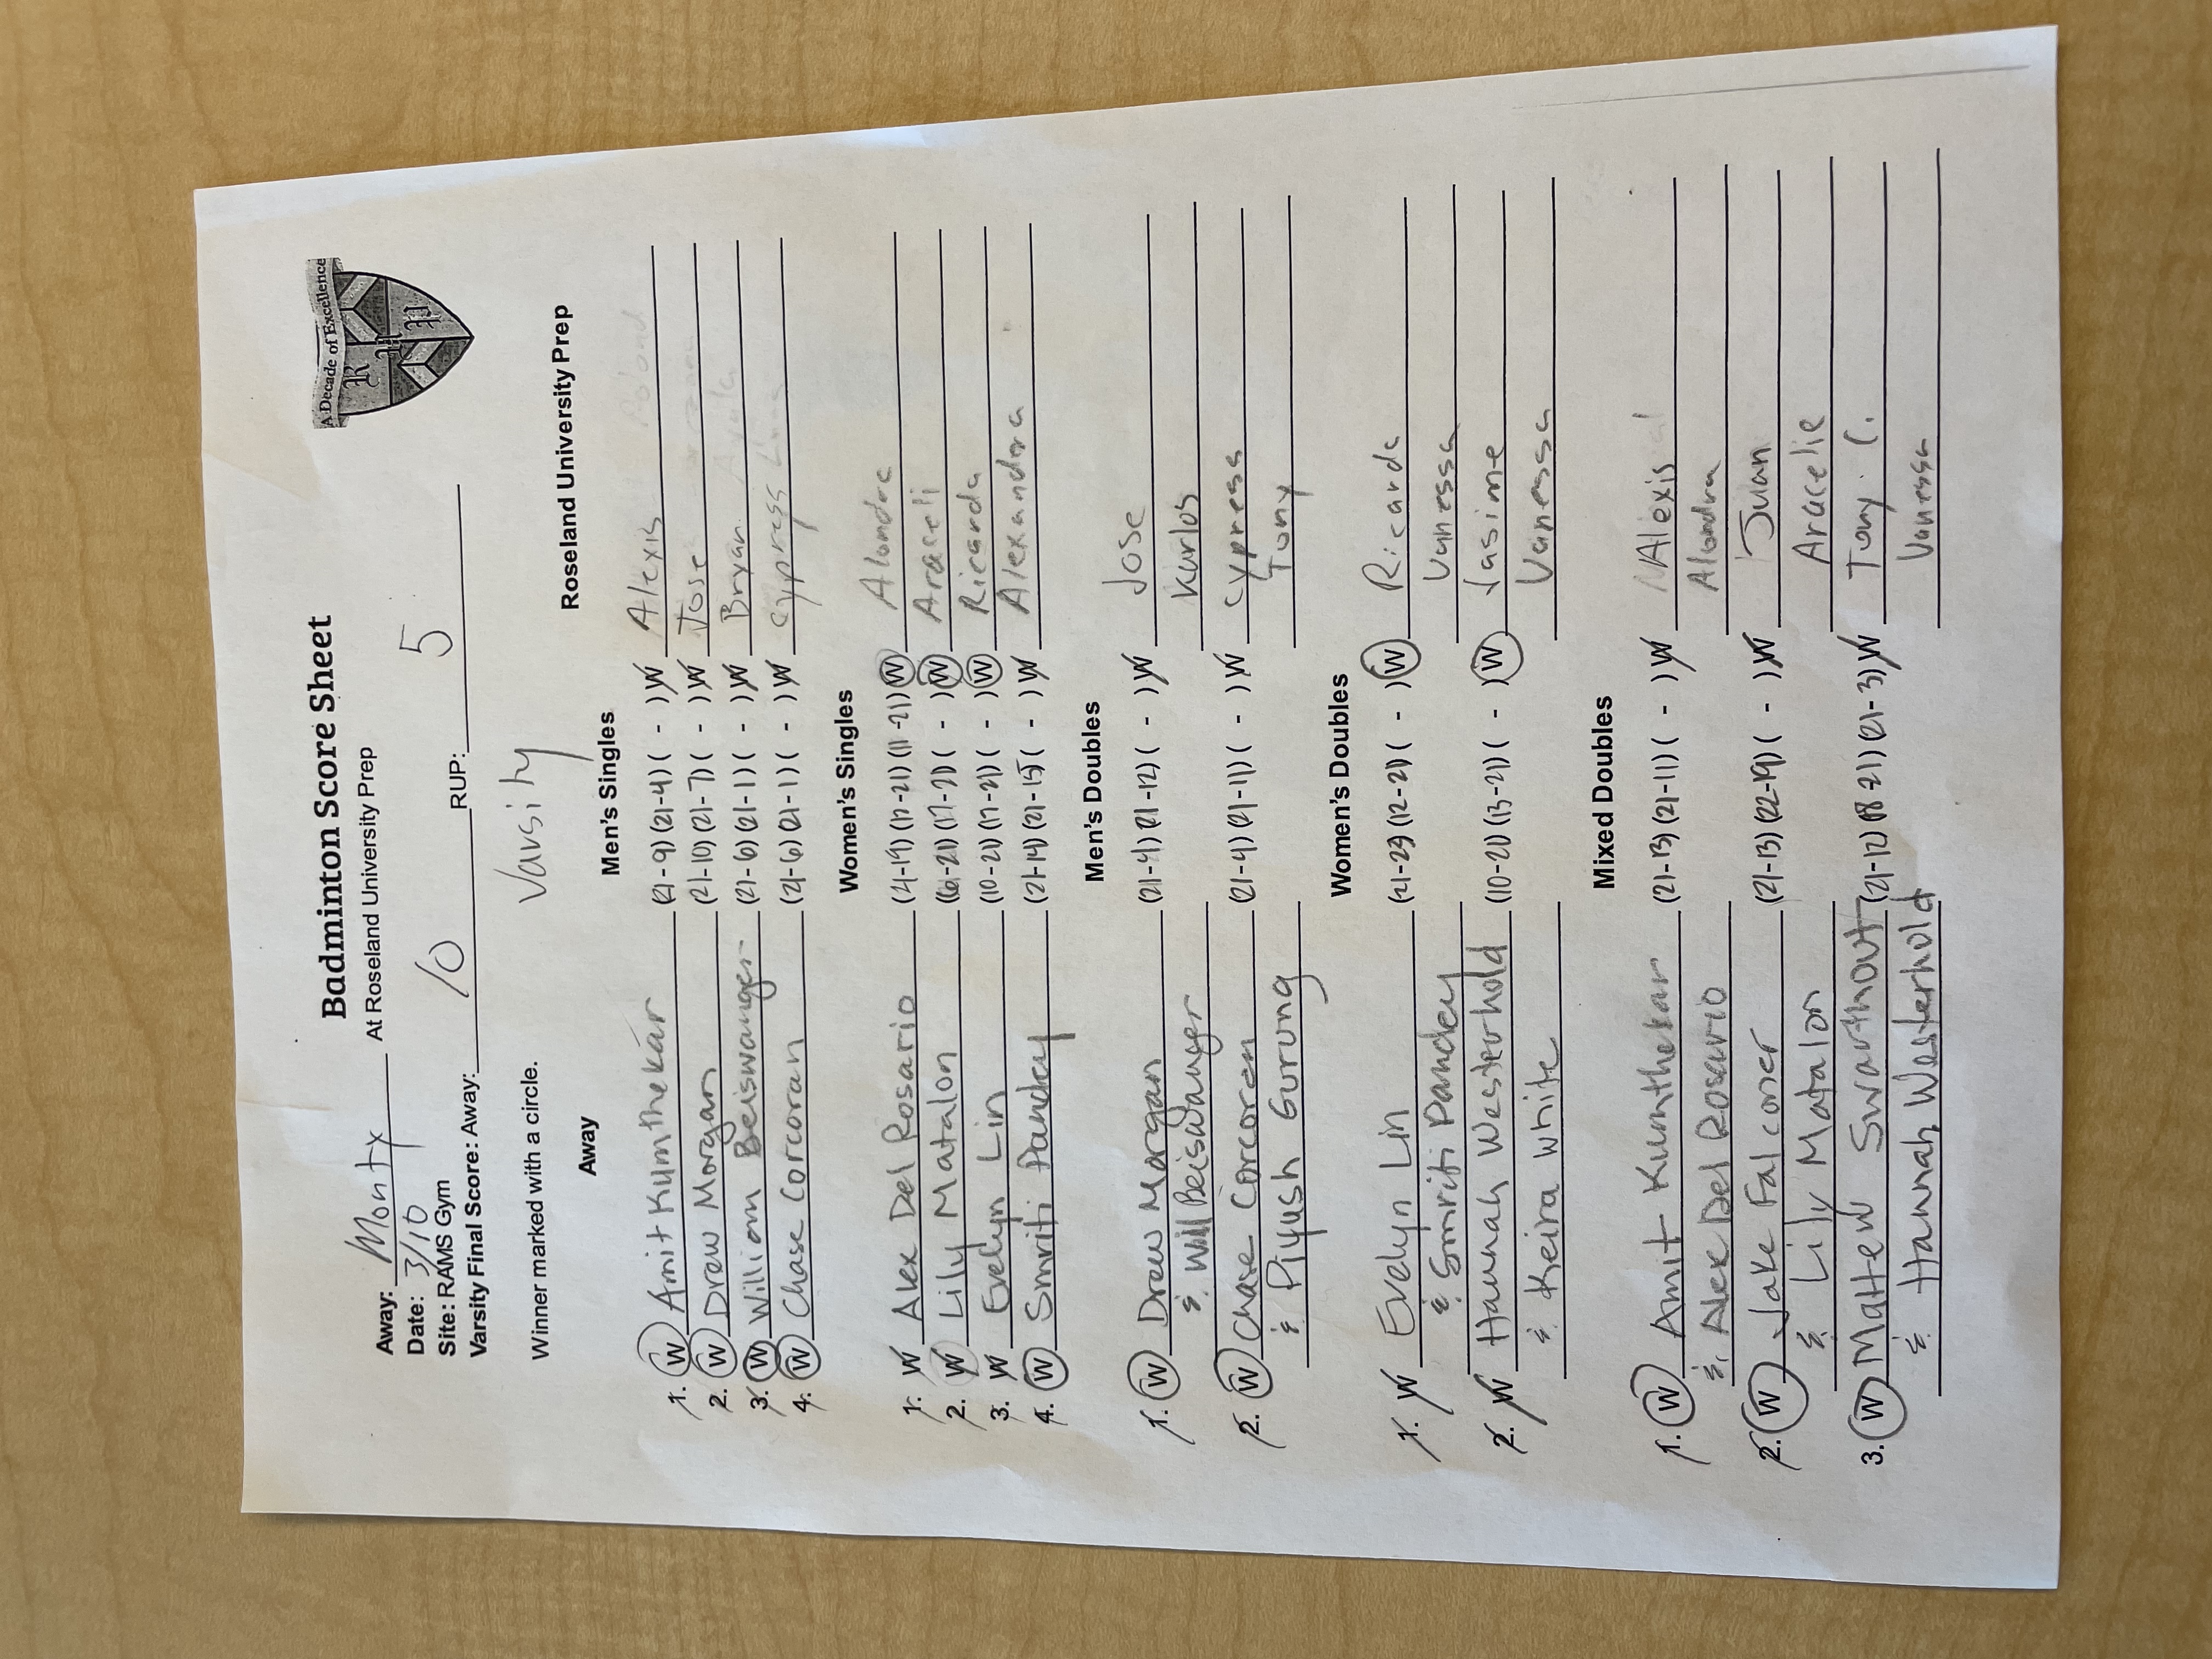 Badminton Score Sheet
A Decade of Excellence
R U P
Away: Monty At Roseland University Prep
Date: 3/10
Site: RAMS Gym
Varsity Final Score: Away: 10 RUP: 5
Varsity
Winner marked with a circle.
Away Roseland University Prep
Men's Singles
1. W Amit Kumthekar (21-9) (21-4) ( - ) W Alexis
2. W Drew Morgan (21-10) (21-7) ( - ) W Jose
3. W William Beiswanger (21-6) (21-1) ( - ) W Bryan
4. W Chase Corcoran (21-6) (21-1) ( - ) W Cypress
Women's Singles
1. W Alex Del Rosario (21-19) (17-21) (11-21) W Alondra
2. W Lily Matalon (6-21) (17-21) ( - ) W Araceli
3. W Evelyn Lin (10-21) (17-21) ( - ) W Ricarda
4. W Smriti Pandey (21-14) (21-15) ( - ) W Alexandra
Men's Doubles
1. W Drew Morgan (21-4) (21-12) ( - ) W Jose
& Will Beiswanger Karlos
2. W Chase Corcoran (21-4) (21-11) ( - ) W Cypress
& Piyush Gurung Tony
Women's Doubles
1. W Evelyn Lin (21-23) (12-21) ( - ) W Ricarda
& Smriti Pandey Vanessa
2. W Hannah Westerhold (10-21) (13-21) ( - ) W Jasime
& Keira White Vanessa
Mixed Doubles
1. W Amit Kumthekar (21-13) (21-11) ( - ) W Alexis
& Alex Del Rosario Alondra
2. W Jake Falconer (21-13) (22-19) ( - ) W Juan
& Lily Matalon Aracelie
3. W Mattew Swarthout (21-12) (18-21) (21-3) W Tony C.
& Hannah Westerhold Vanessa